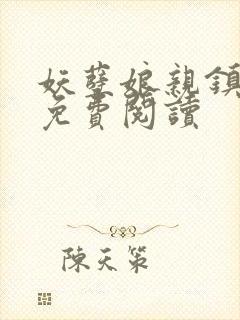 妖孽娘親鎮
免費閱讀
陳天策